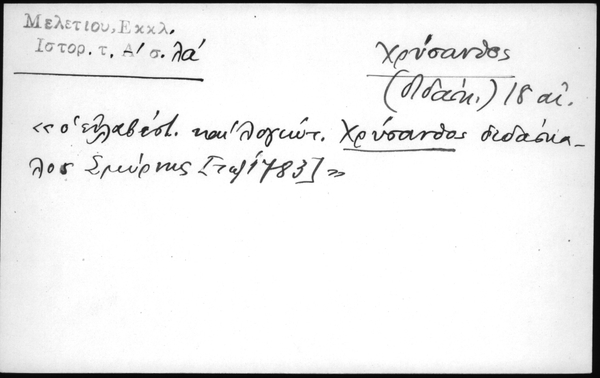 Μελετίου, Εκκλ.
Ιστορ. τ. Α' σ. λα'
Χρύσανθος
(διδάσκ.) 18 αἰ.
«ὁ εὐλαβέστ. καὶ λογιώτ. Χρύσανθος διδάσκα-
λος Σμύρνης [τῷ 1783]»